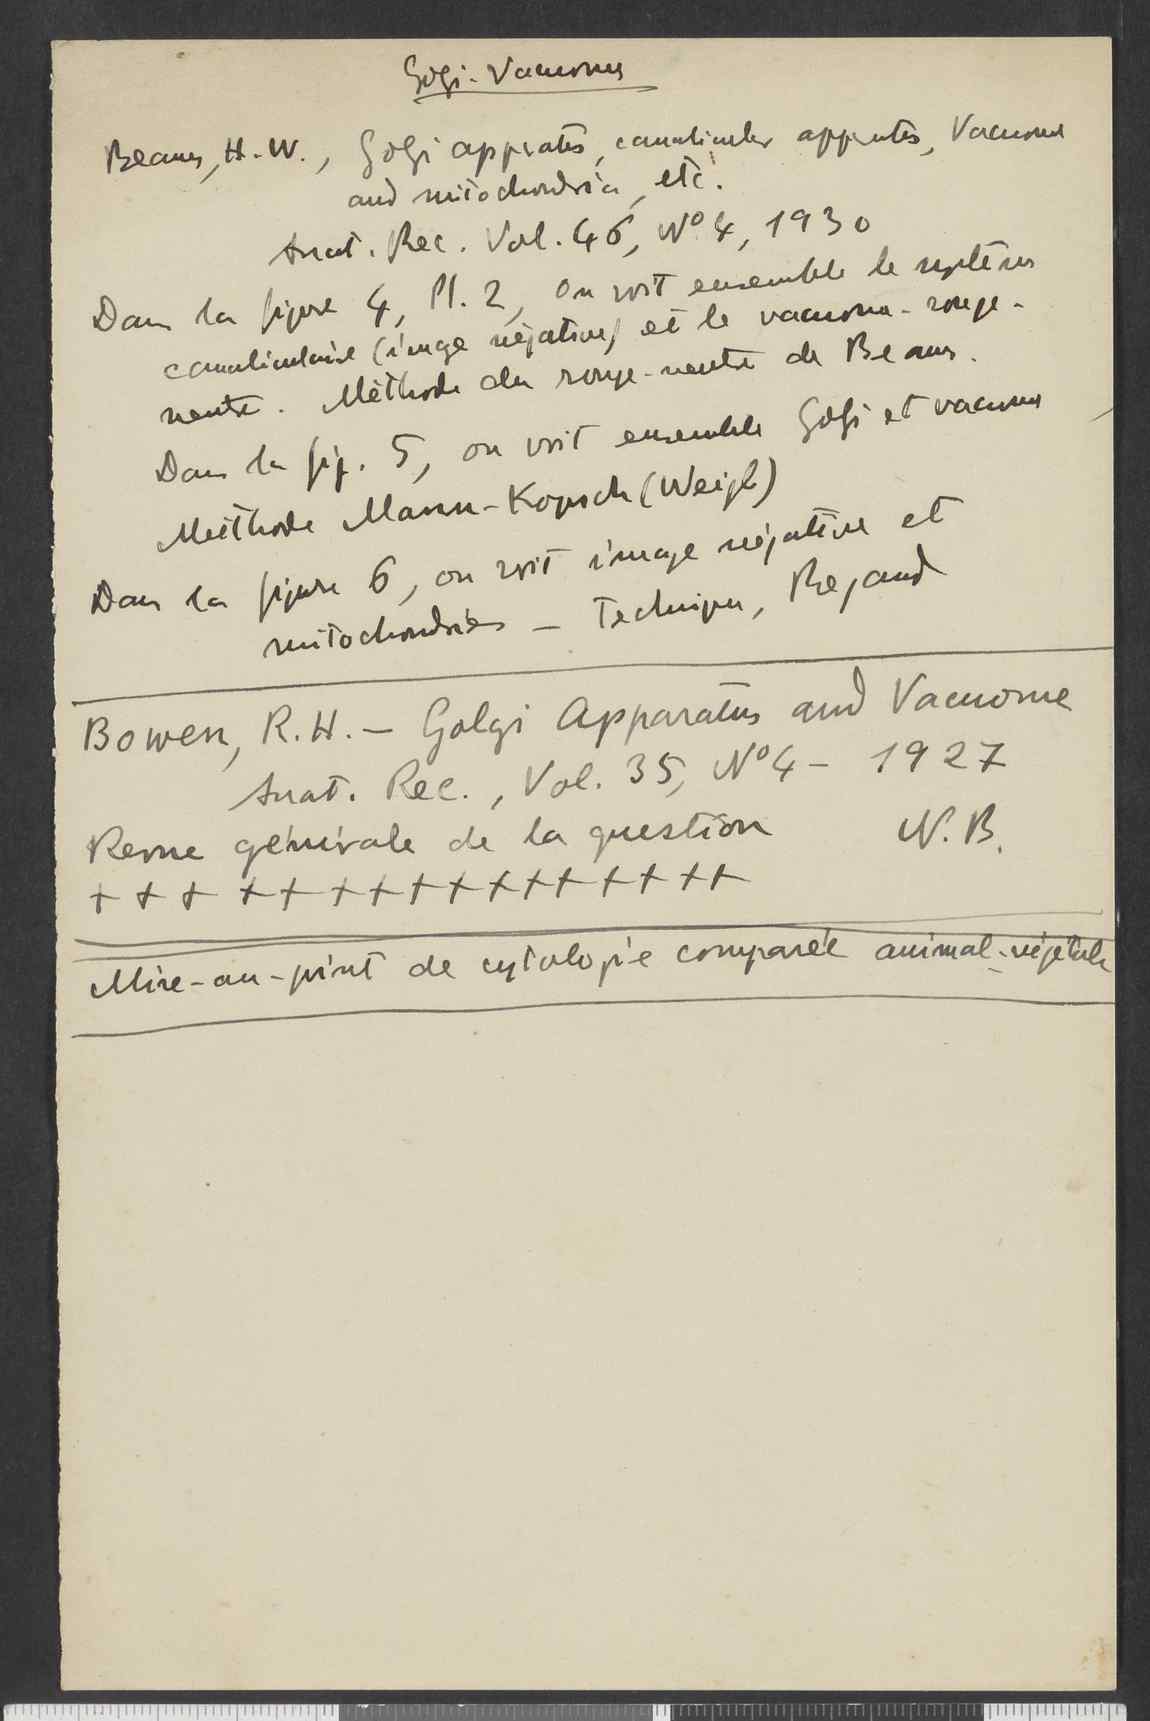 Golgi-Vacuome
Beams, H.W., Golgi appratus, canalicular appratus, Vacuome
and mitochondria, etc.
Anat. Rec. Vol. 46, Nº 4, 1930
Dans la figure 4, Pl. 2, on voit ensemble le système
canaliculaire (image négative) et le vacuome - rouge-
neutre. Méthode du rouge-neutre de Beams.
Dans la fig. 5, on voit ensemble Golgi et vacuome
Méthode Mann-Kopsch (Weigl)
Dans la figure 6, on voit image négative et
mitochondries - Technique, Regaud
Bowen, R.H. - Golgi Apparatus and Vacuome
Anat. Rec., Vol. 35, Nº 4 - 1927
Revue générale de la question N.B.
+ + + + + + + + + + + + + + + + +
Mise-au-point de cytologie comparée animal-végétale